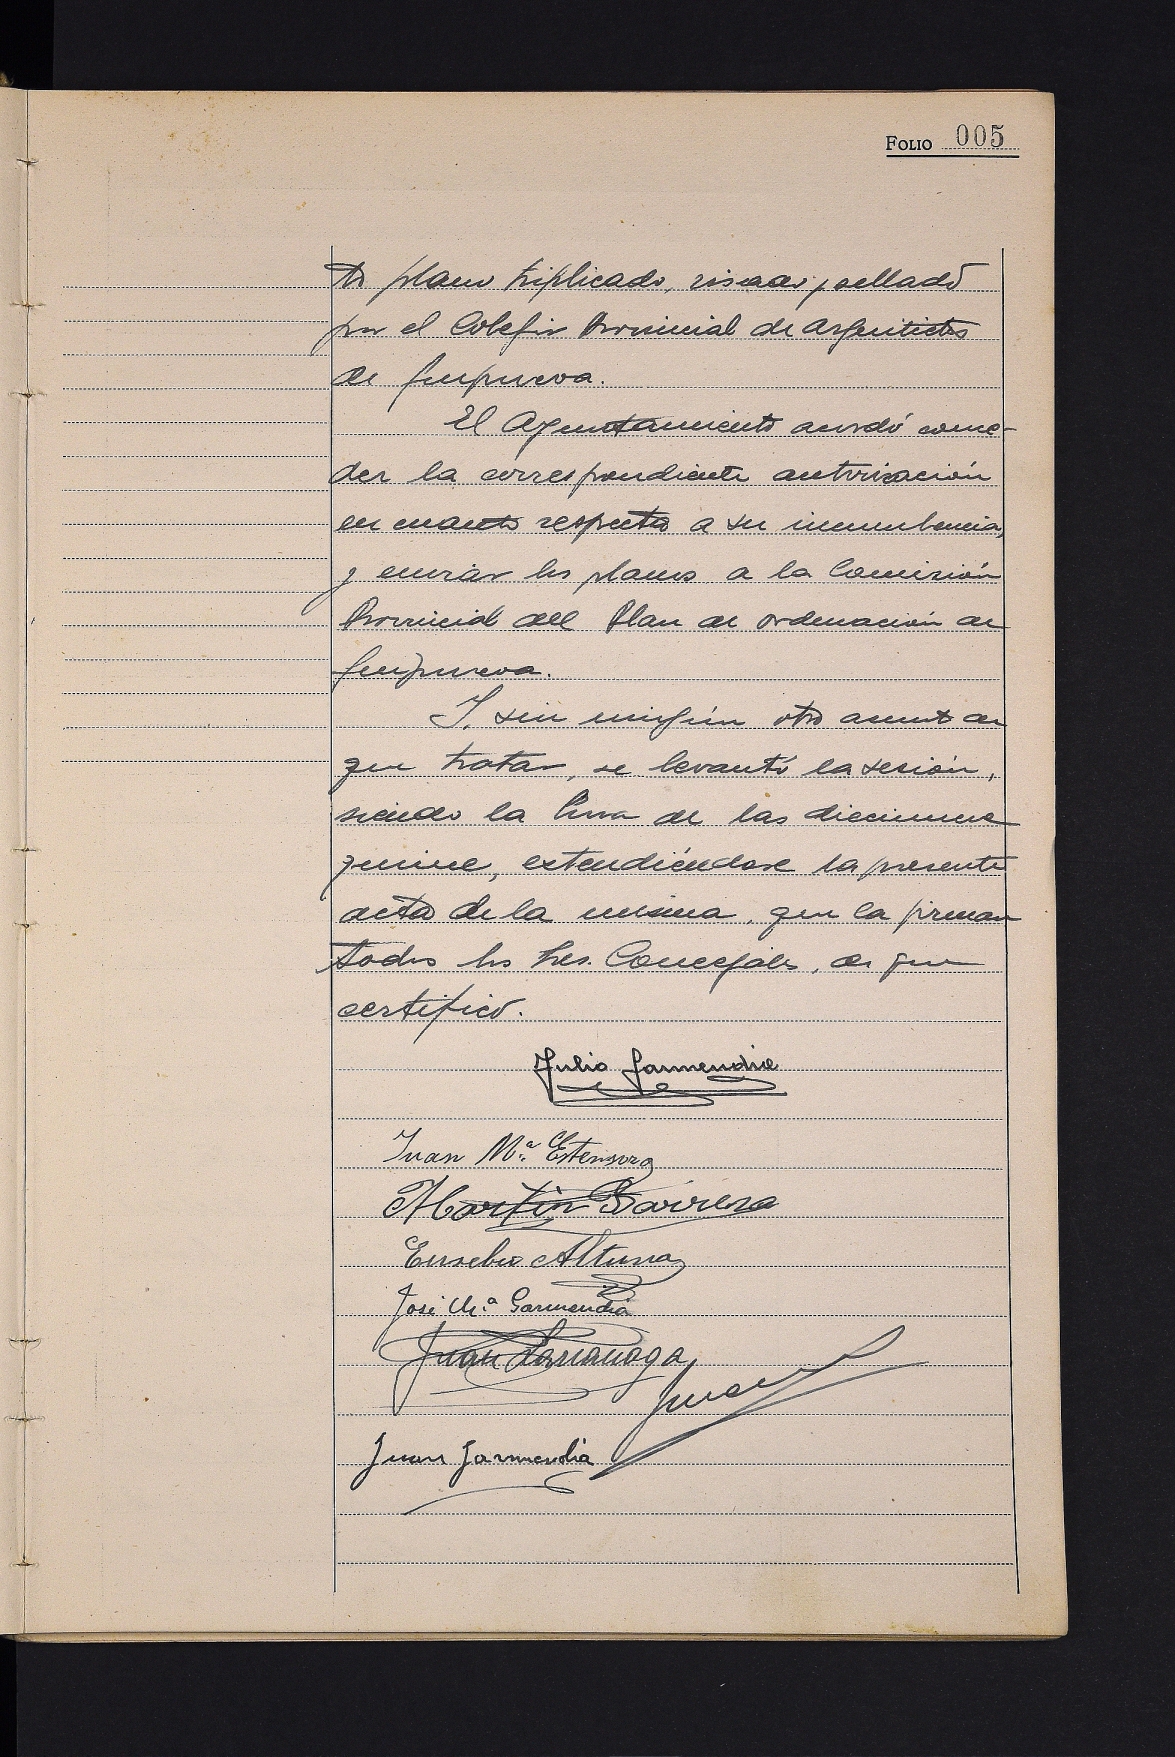 Folio 005
to plano triplicado, visado y sellado
por el Colegio Provincial de Arquitectos
de Guipuzcoa.
El Ayuntamiento acordó conce-
der la correspondiente autorización
en cuanto respecta a su incumbencia,
y enviar los planos a la Comisión
Provincial del Plan de ordenación de
Guipuzcoa.
Y, sin ningún otro asunto de
que tratar, se levantó la sesión,
siendo la hora de las diecinueve
quince, extendiéndose la presente
acta de la misma, que la firman
todos los Sres. Concejales, de que
certifico.
Julio Garmendia
Juan Mª Estensoro
Martin Barrena
Eusebio Altuna
José Mª Garmendia
Juan Larrañaga
Juan Garmendia